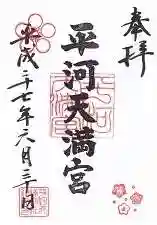 奉拝
平河天満宮
平成二十七年六月三十日